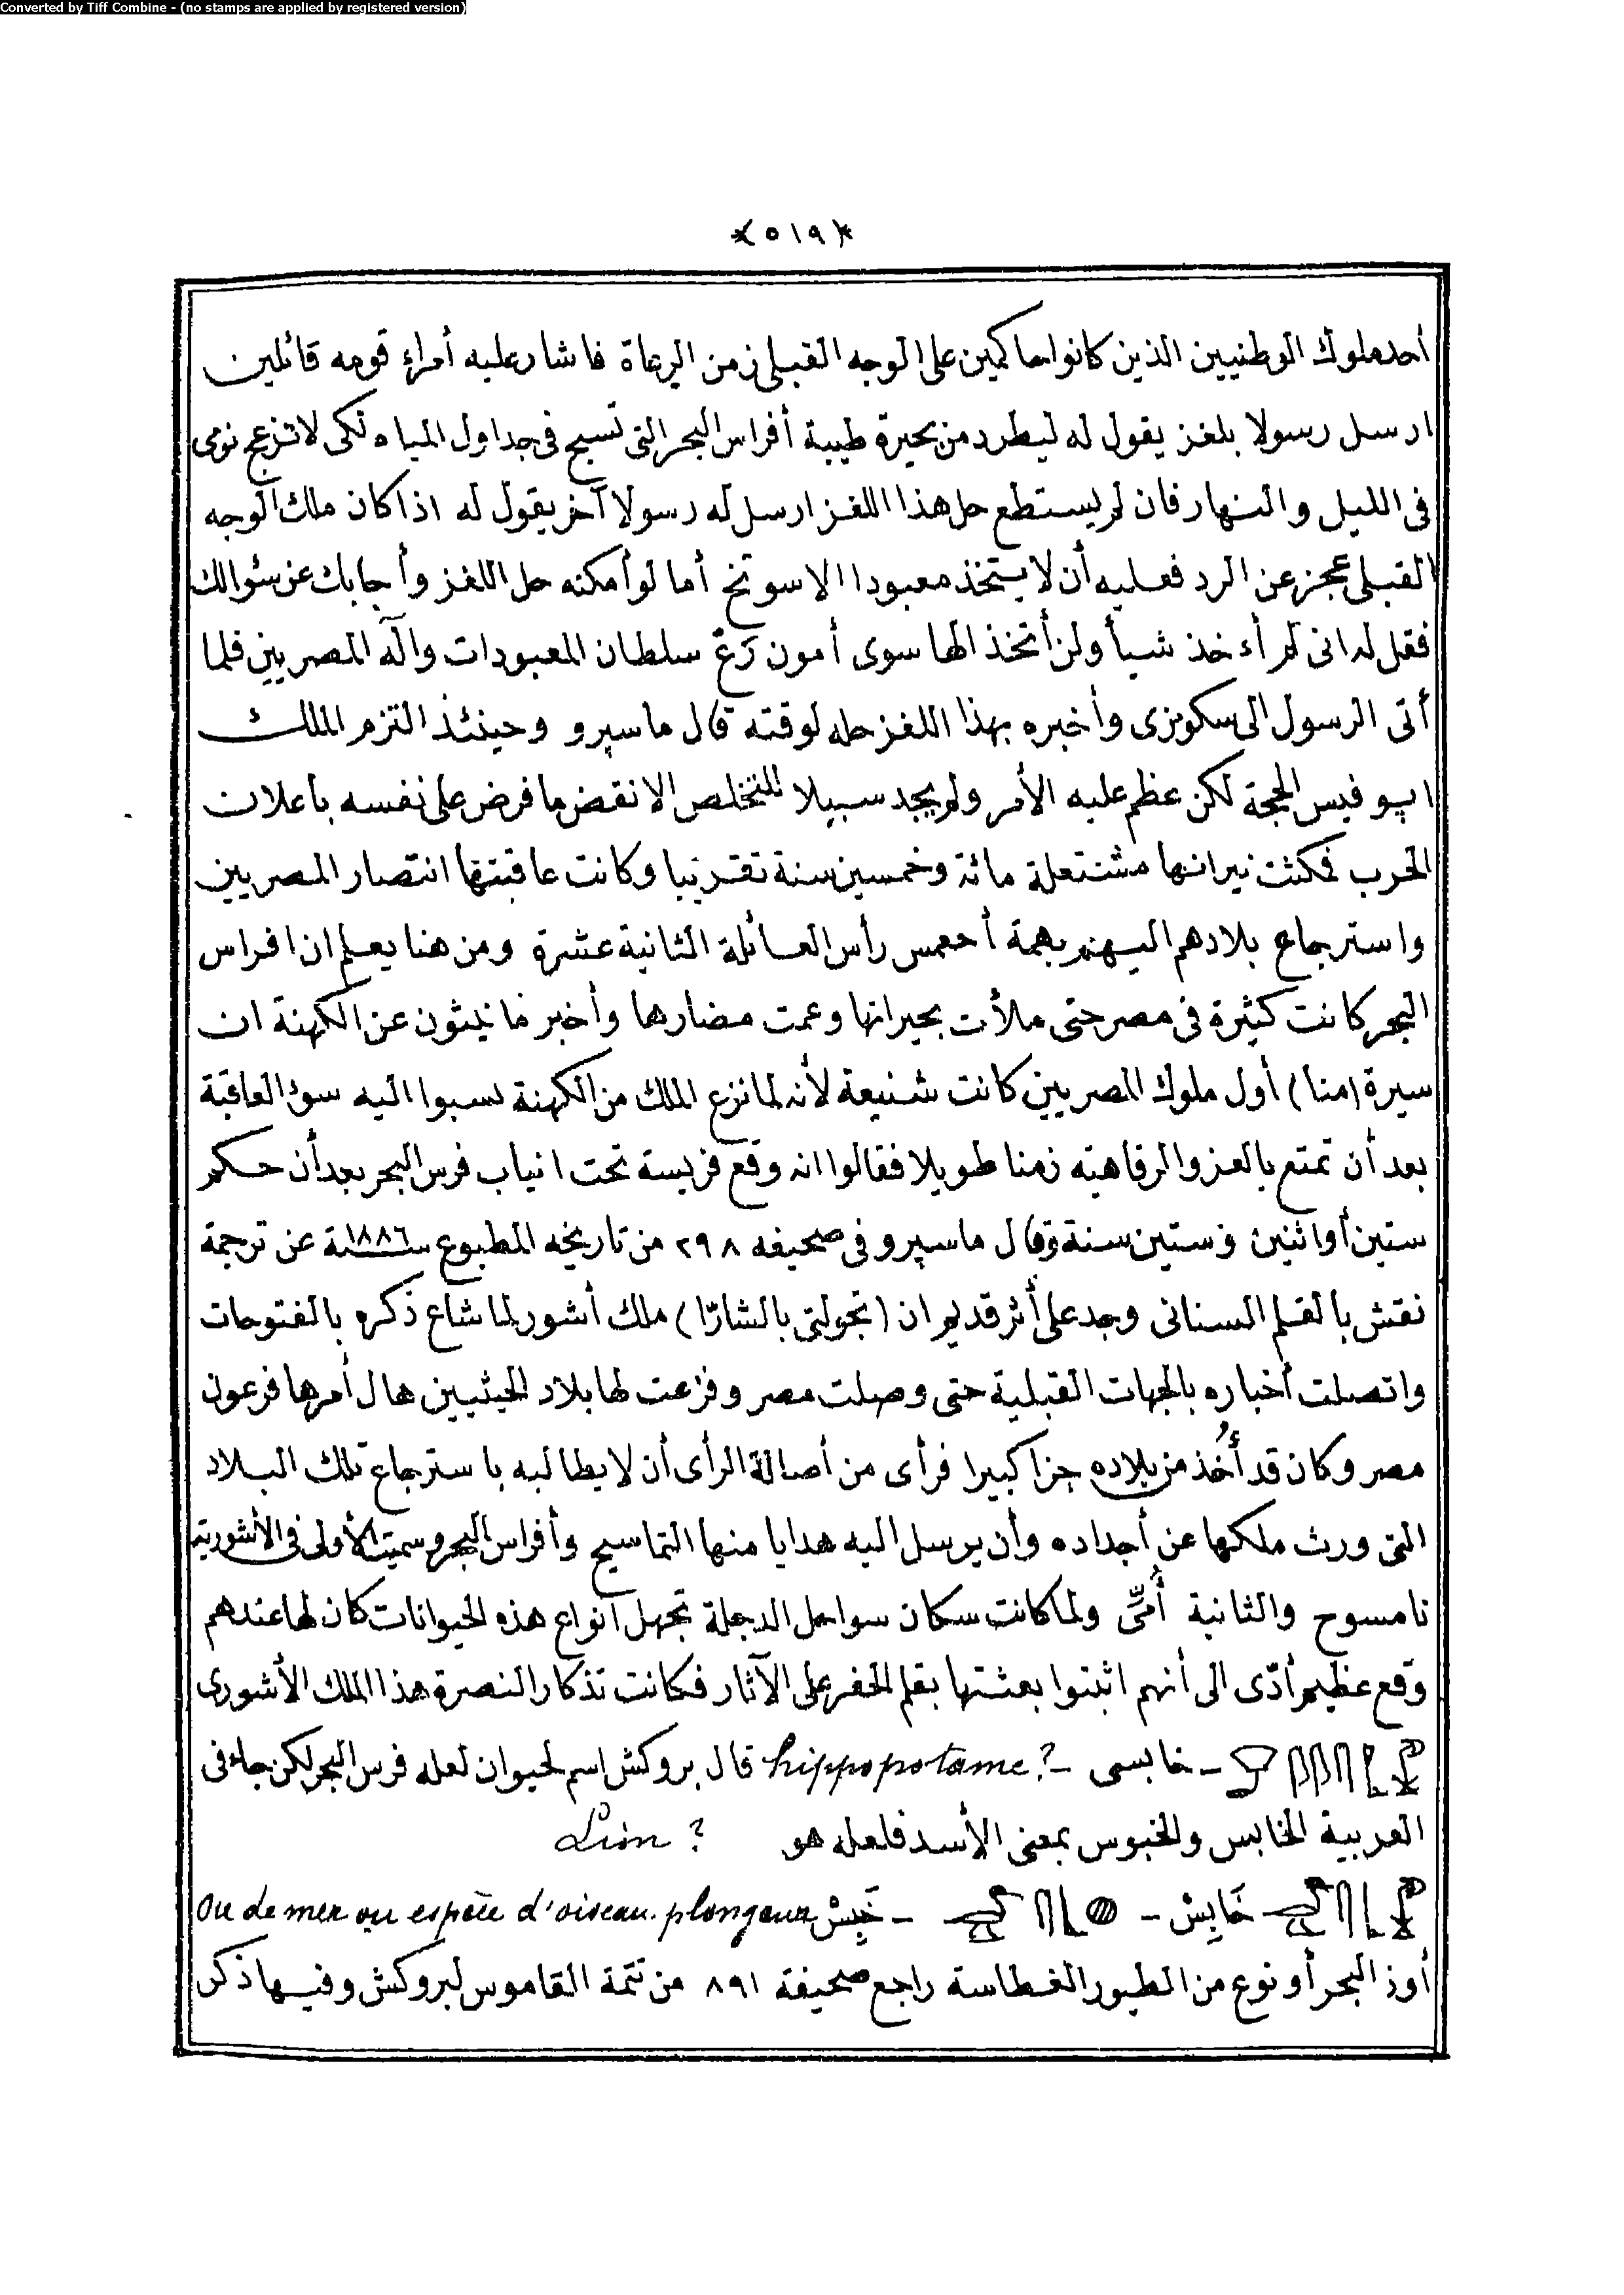 Converted by Tiff Combine - (no stamps are applied by registered version)
﴿٥١٩﴾
أحد ملوك الوطنيين الذين كانوا حاكمين على الوجه القبلى زمن الرعاة فاشار عليه أمراء قومه قائلين
ارسل رسولا بلغز يقول له ليطرد من بحيرة طيبة أفراس البحر التى تسبح فى جداول المياه لكى لا تزعج نومى
فى الليل والنهار فان لم يستطع حل هذا اللغز ارسل له رسولا آخر يقول له اذا كان ملك الوجه
القبلى عجز عن الرد فعليه أن لا يتخذ معبودا الا سوتخ أما لو أمكنه حل اللغز وأجابك عن سئوالك
فقل له انى لم أءخذ شيأ ولن أتخذ الها سوى أمون رَعْ سلطان المعبودات وآله المصريين فلما
أتى الرسول الى سكونزى وأخبره بهذا اللغز حله لوقته قال ماسپرو وحينئذ التزم الملك
اپوفيس الحجة لكن عظم عليه الأمر ولم يجد سبيلا للتخلص الا نقض ما فرض على نفسه باعلان
الحرب فمكثت نيرانها مشتعلة مائة وخمسين سنة تقريبا وكانت عاقبتها انتصار المصريين
واسترجاع بلادهم اليهم بهمة أحعمس رأس العائلة الثانية عشرة ومن هنا يعلم ان افراس
البحر كانت كثيرة فى مصر حتى ملأت بحيراتها وعمت مضارها وأخبر مانيثون عن الكهنة ان
سيرة (منا) أول ملوك المصريين كانت شنيعة لأنه لما نزع الملك من الكهنة نسبوا اليه سوء العاقبة
بعد أن تمتع بالعز والرفاهيه زمنا طويلا فقالوا انه وقع فريسة تحت انياب فرس البحر بعد أن حكم
ستين أو اثنين وستين سنة وقال ماسپرو فى صحيفه ٢٩٨ من تاريخه المطبوع سنة ١٨٨٦ عن ترجمة
نقش بالقلم السنانى وجد على أثر قديم ان (تجولتى بالشارّا) ملك أشور لما شاع ذكره بالفتوحات
واتصلت أخباره بالجهات القبلية حتى وصلت مصر وفزعت لها بلاد الحيثيين هال أمرها فرعون
مصر وكان قد أُخذ من بلاده جزأ كبيرا فرأى من أصالة الرأى أن لا يطالبه باسترجاع تلك البلاد
التى ورث ملكها عن أجداده وأن يرسل اليه هدايا منها التماسيح وأفراس البحر وسميت الأولى فى الأشورية
نامسوح والثانية أُمِّى ولما كانت سكان سواحل الدجلة تجهل أنواع هذه الحيوانات كان لها عندهم
وقع عظيم أدّى الى أنهم اثبتوا بعثتها بقلم الحفر على الآثار فكانت تذكارا لنصرة هذا الملك الأشورى
- خابسى - hippopotame? قال بروكش اسم لحيوان لعله فرس البحر لكن جاء فى
العربية الخابس والخبوس بمعنى الأسد فلعله هو Lion ?
خَابِسْ - - خَبِسْ Ou de mer ou espèce d'oiseau plongeur
أوز البحر أو نوع من الطيور الغطاسة راجع صحيفة ٨٩١ من تتمة القاموس لبروكش وفيها ذكر